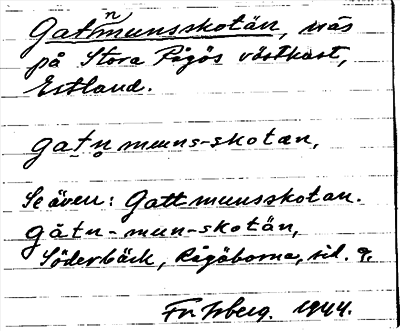 Gatnmunsskotän, näs
på Stora Rågös västkust,
Estland.
gatn muns-skotan,
Se även: Gattmunsskotan.
gåtn-mun-skotän,
Söderbäck, Rågöborna, sid. 9.
1944.